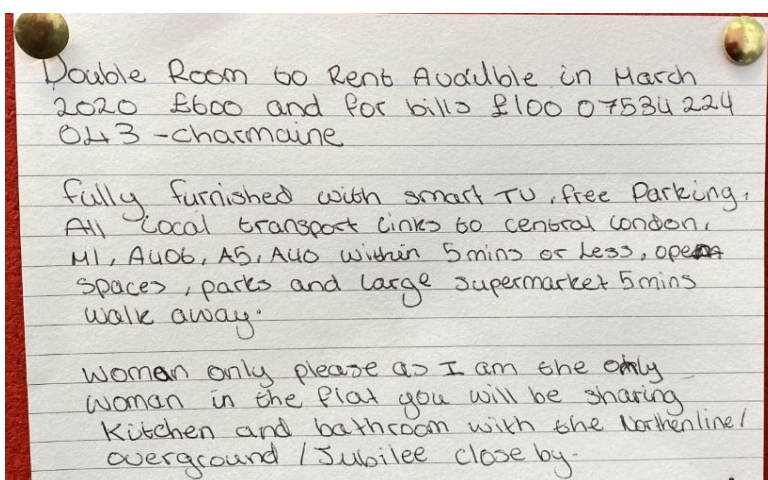 Double Room to Rent Availble in March
2020 £600 and for bills £100 07534 224
043 - Charmaine
fully furnished with smart TV, free Parking,
All local transport links to central london,
M1, A406, A5, A40 within 5 mins or Less, open
spaces, parks and large supermarket 5 mins
walk away.
Woman only please as I am the only
woman in the flat you will be sharing
Kitchen and bathroom with the Northenline/
overground / Jubilee close by.